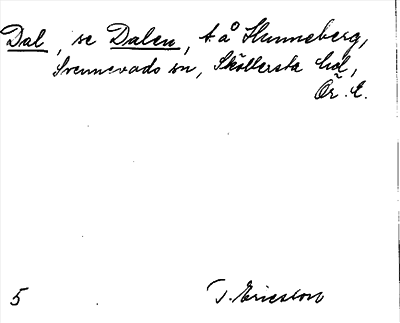 Dal, se Dalen, t å Hunneberg,
Svennevads sn, Sköllersta hd,
Ör. l.
5 T. Ericsson